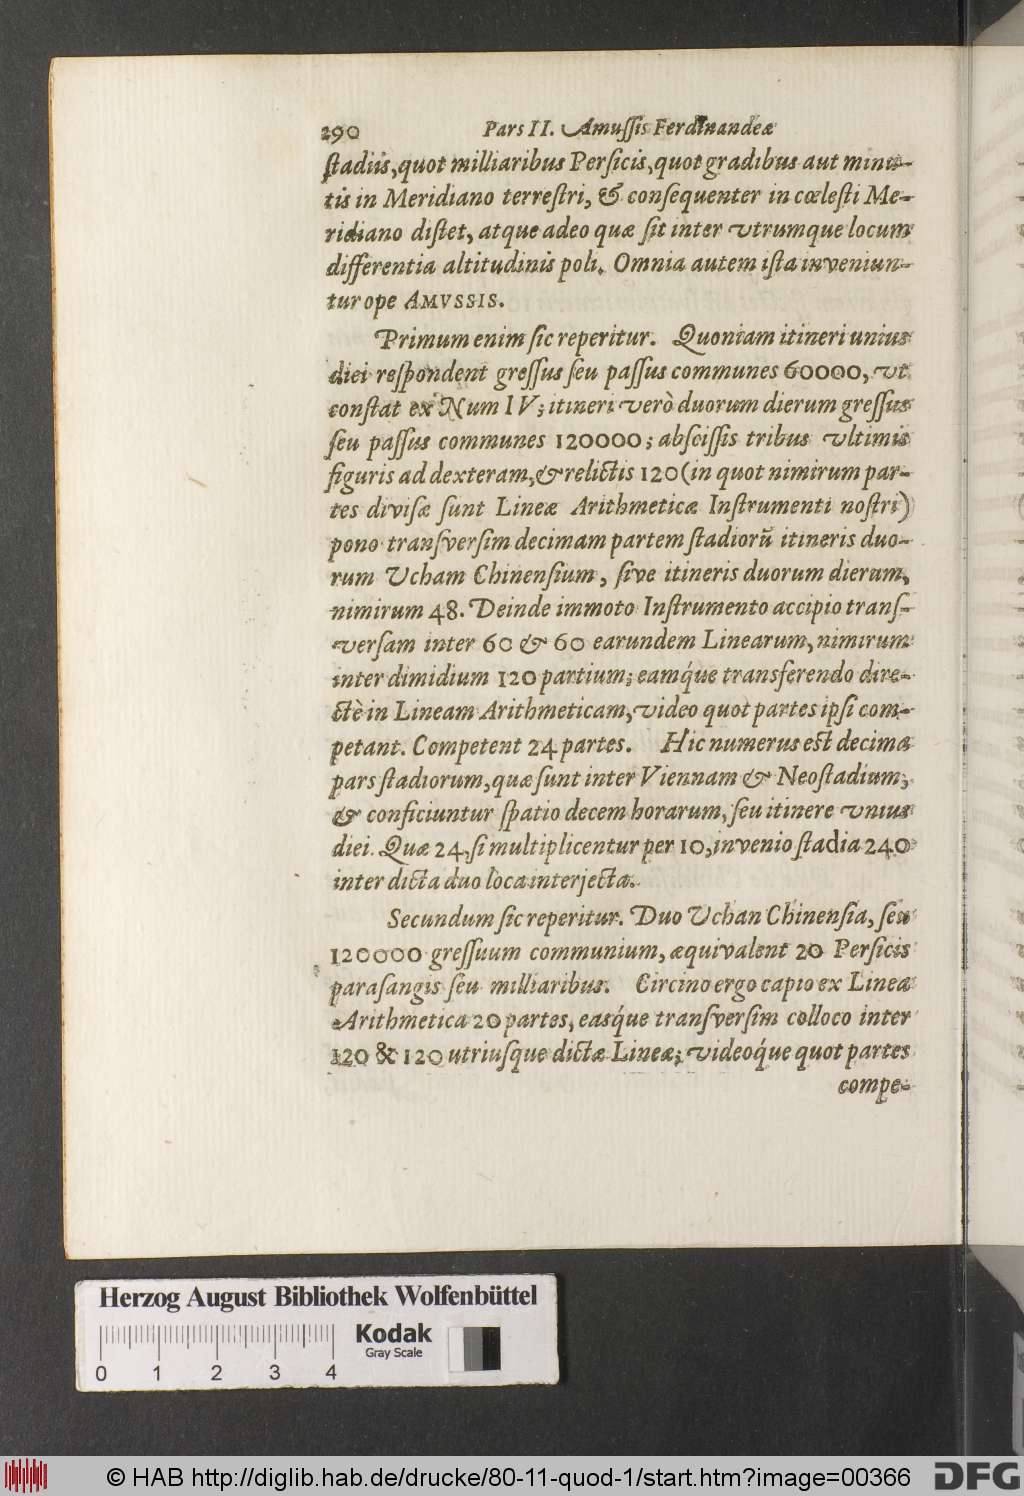 290 Pars II. Amuſſis Ferdinandeæ
ſtadiis, quot milliaribus Perſicis, quot gradibus aut minu-
tis in Meridiano terreſtri, & conſequenter in cœleſti Me-
ridiano diſtet, atque adeo quæ ſit inter vtrumque locum
differentia altitudinis poli. Omnia autem iſta inveniun-
tur ope AMVSSIS.
Primum enim ſic reperitur. Quoniam itineri unius
diei reſpondent greſſus ſeu paſſus communes 60000, vt
conſtat ex Num IV; itineri verò duorum dierum greſſus
ſeu paſſus communes 120000; abſciſſis tribus vltimis
figuris ad dexteram, & relictis 120 (in quot nimirum par-
tes diviſæ ſunt Lineæ Arithmeticæ Inſtrumenti noſtri)
pono tranſverſim decimam partem ſtadiorũ itineris duo-
rum Ucham Chinenſium, ſive itineris duorum dierum,
nimirum 48. Deinde immoto Inſtrumento accipio tranſ-
verſam inter 60 & 60 earundem Linearum, nimirum
inter dimidium 120 partium; eamq́ue transferendo dire-
ctè in Lineam Arithmeticam, video quot partes ipſi com-
petant. Competent 24 partes. Hic numerus eſt decima
pars ſtadiorum, quæ ſunt inter Viennam & Neoſtadium,
& conficiuntur ſpatio decem horarum, ſeu itinere vnius
diei. Quæ 24, ſi multiplicentur per 10, invenio ſtadia 240
inter dicta duo loca interjecta.
Secundum ſic reperitur. Duo Uchan Chinenſia, ſeu
120000 greſſuum communium, æquivalent 20 Perſicis
paraſangis ſeu milliaribus. Circino ergo capio ex Linea
Arithmetica 20 partes, easq́ue tranſverſim colloco inter
120 & 120 utriuſque dictæ Lineæ; videoq́ue quot partes
compe-
Herzog August Bibliothek Wolfenbüttel
Kodak
Gray Scale
0 1 2 3 4
© HAB http://diglib.hab.de/drucke/80-11-quod-1/start.htm?image=00366
DFG